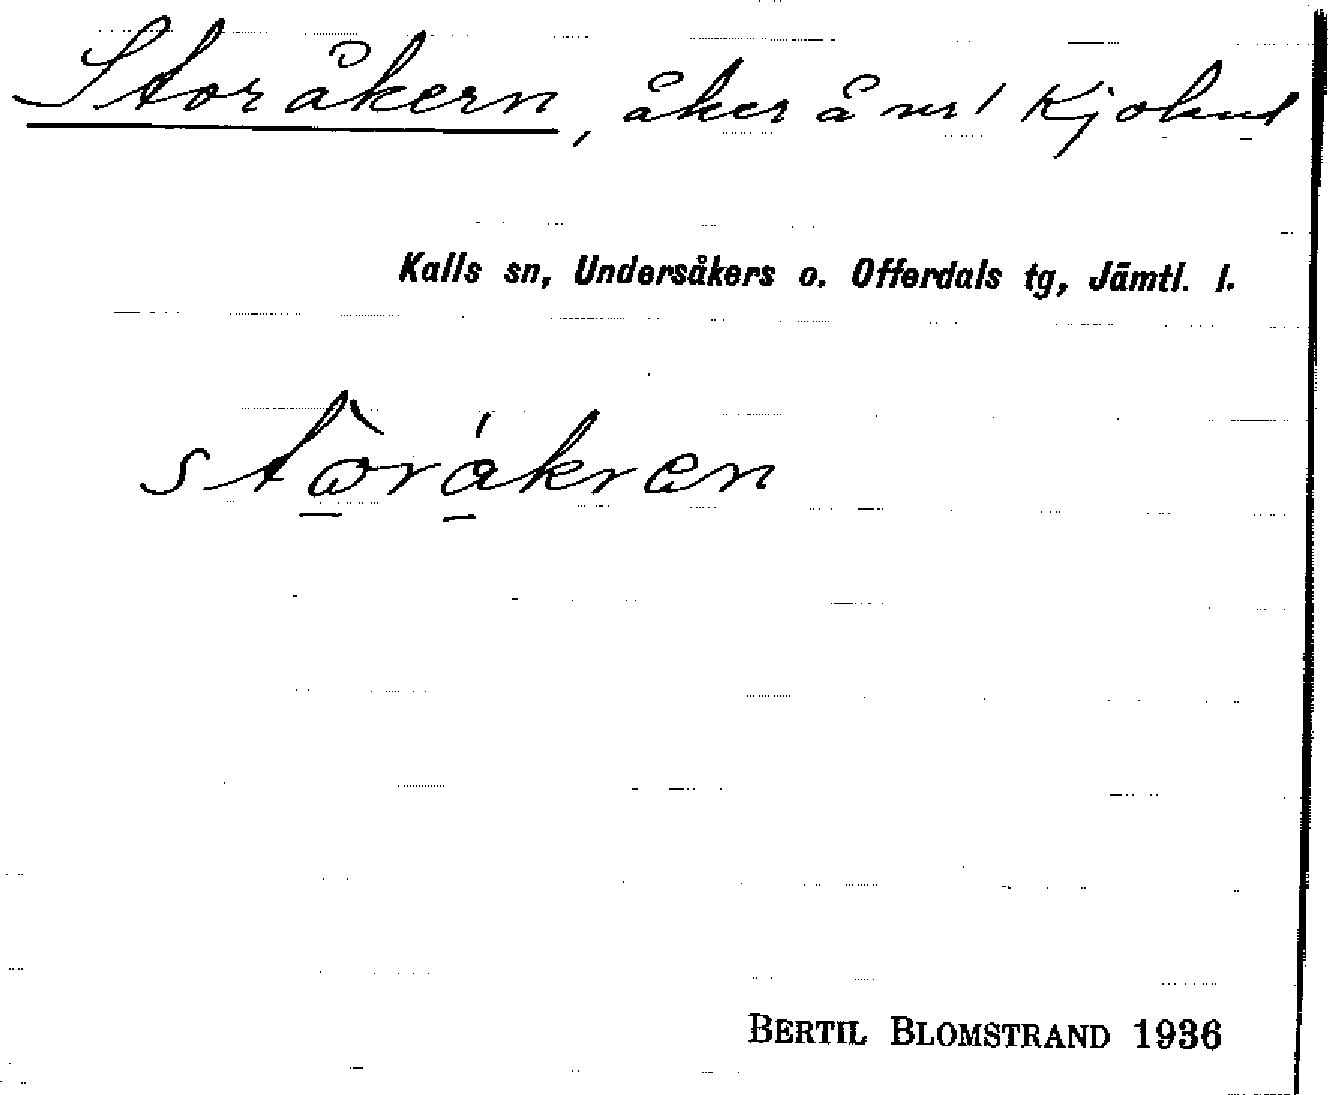 Storåkern, åker å nr 1 Kjoland
Kalls sn, Undersåkers o. Offerdals tg, Jämtl. l.
stòråkren
BERTIL BLOMSTRAND 1936